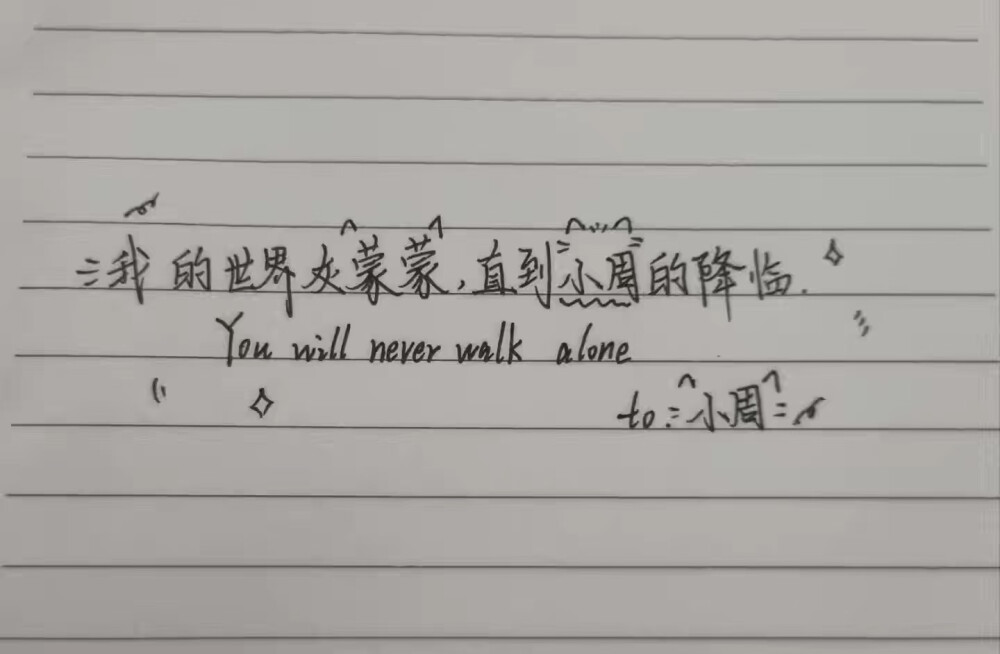 我的世界灰蒙蒙,直到小周的降临.
You will never walk alone
to:小周